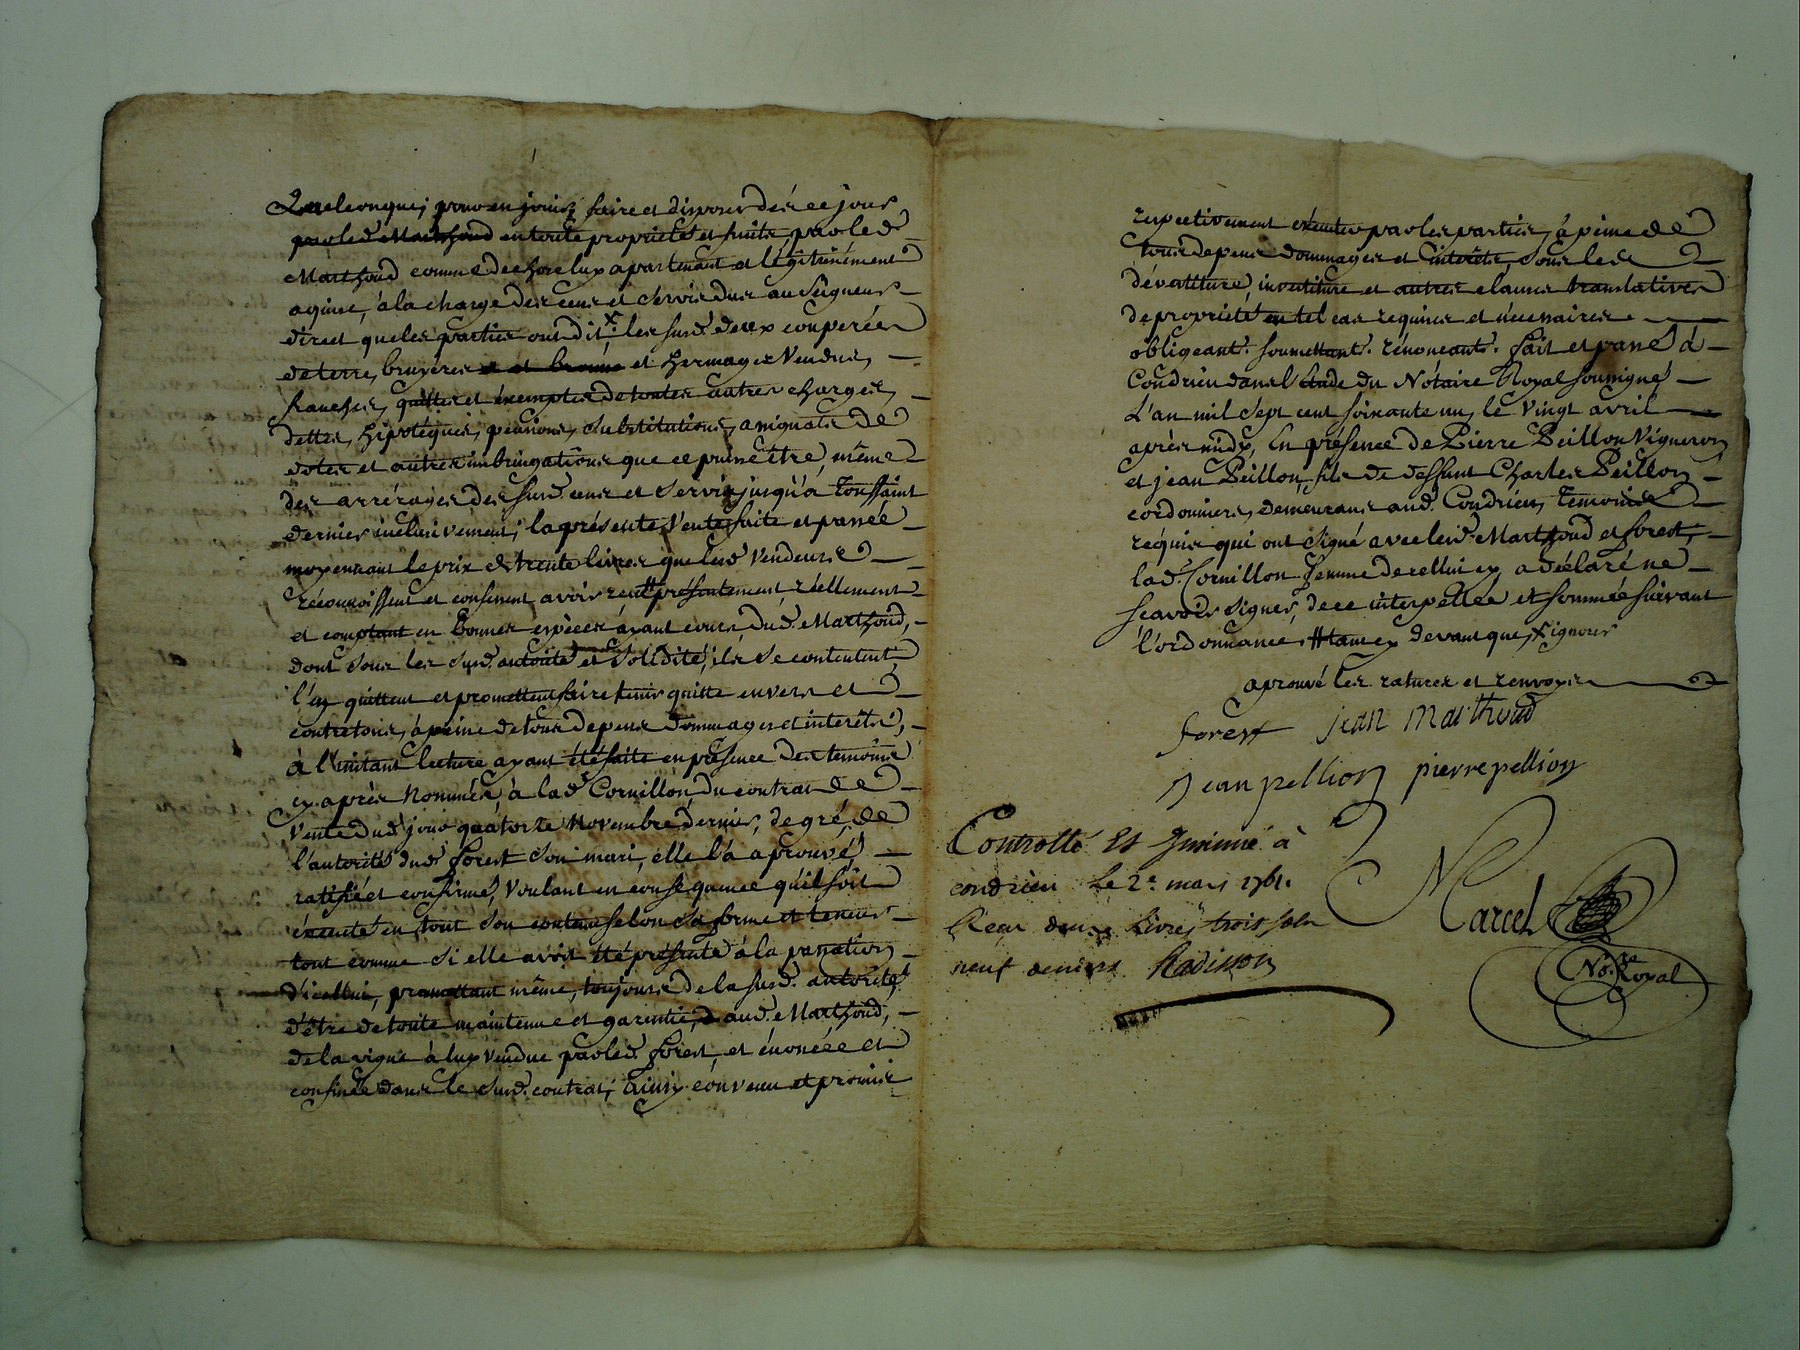 Quelconques, pour en jouir, faire et disposer dés ce jour
par led. Marthoud en toute proprieté et fruits par led.
Marthoud comme de chose luy apartenant et légitimément
aquise, à la charge des cens et servis dus au Seigneur
direct que les parties ont dit, les susd. deux couperées
de terre, bruyeres et hermages vendus,
franches, quittes et éxemptes de toutes autres charges,
dettes, hipotèques, pensions, substitutions, assignats de
dotes et autres imbringations que ce puisse être, même
des arrérages des susd. cens et servis jusqu'à Toussaint
dernier inclusivement; la présente vente faite et passée
moyennant le prix de trente livres que lesd. vendeurs
réconnoissent et confessent avoir reçu présentement, réellement
et comptant en bonnes espèces ayant cours, dud. Marthoud,
dont sous les susd. autorité et solidité, ils se contentent,
l'en quittent et promettent faire tenir quitte envers et
contre tous, à peine de tous depens dommages et intérêts,
à l'instant lecture ayant été faite en présence des temoins
cy après nommés, à lad. Cornillon du contrat de
vente dud. jour quatorze Novembre dernier, de gré, de
l'autorité dud. Forest son mari, elle l'a aprouvé,
ratifié et confirmé, voulant en conséquence qu'il soit
éxecuté en tout son contenu selon sa forme et teneur
tout comme si elle avoit été présente à la passation
d'icelluy, promettant même, toujours de la susd. autorité,
d'être de toute maintenue et garentie, aud. Marthoud,
de la vigne à luy vendue par led. Forest, et énoncée et
confinée dans le susd. contrat; Ainsy convenu et promis
respectivement éxécuter par les parties, à peine de
tous depens dommages et intérêts, sous les
dévestiture, investiture et autres clauses translatives
de proprieté en tel cas requises et nécessaires
obligeants. soumettants. rénonceants. Fait et passé à
Condrieu dans l'étude du Nótaire Royal soussigné
L'an mil sept cent soixante un, le vingt avril
après midy, En présence de Pierre Peillon Vigneron
et jean Peillon fils de deffunt Charles Peillon
cordonniers, demeurans aud. Condrieu, temoins
requis qui ont signé avec lesd. Marthoud et Forest,
lad. Cornillon femme de celluicy, a déclaré ne
scavoir signer, de ce interpellée et sommée suivant
l'ordonnance, # tant cy devant que, X ignorer
aprouvé les ratures et renvoys
forest jean marthoud
Jean pellion pierre pellion
Controllé Et Insinué à
condrieu le 2e. mais 1761.
Recu deux livres trois sols
neuf deniers Radisson
Marcel
No.re Royal